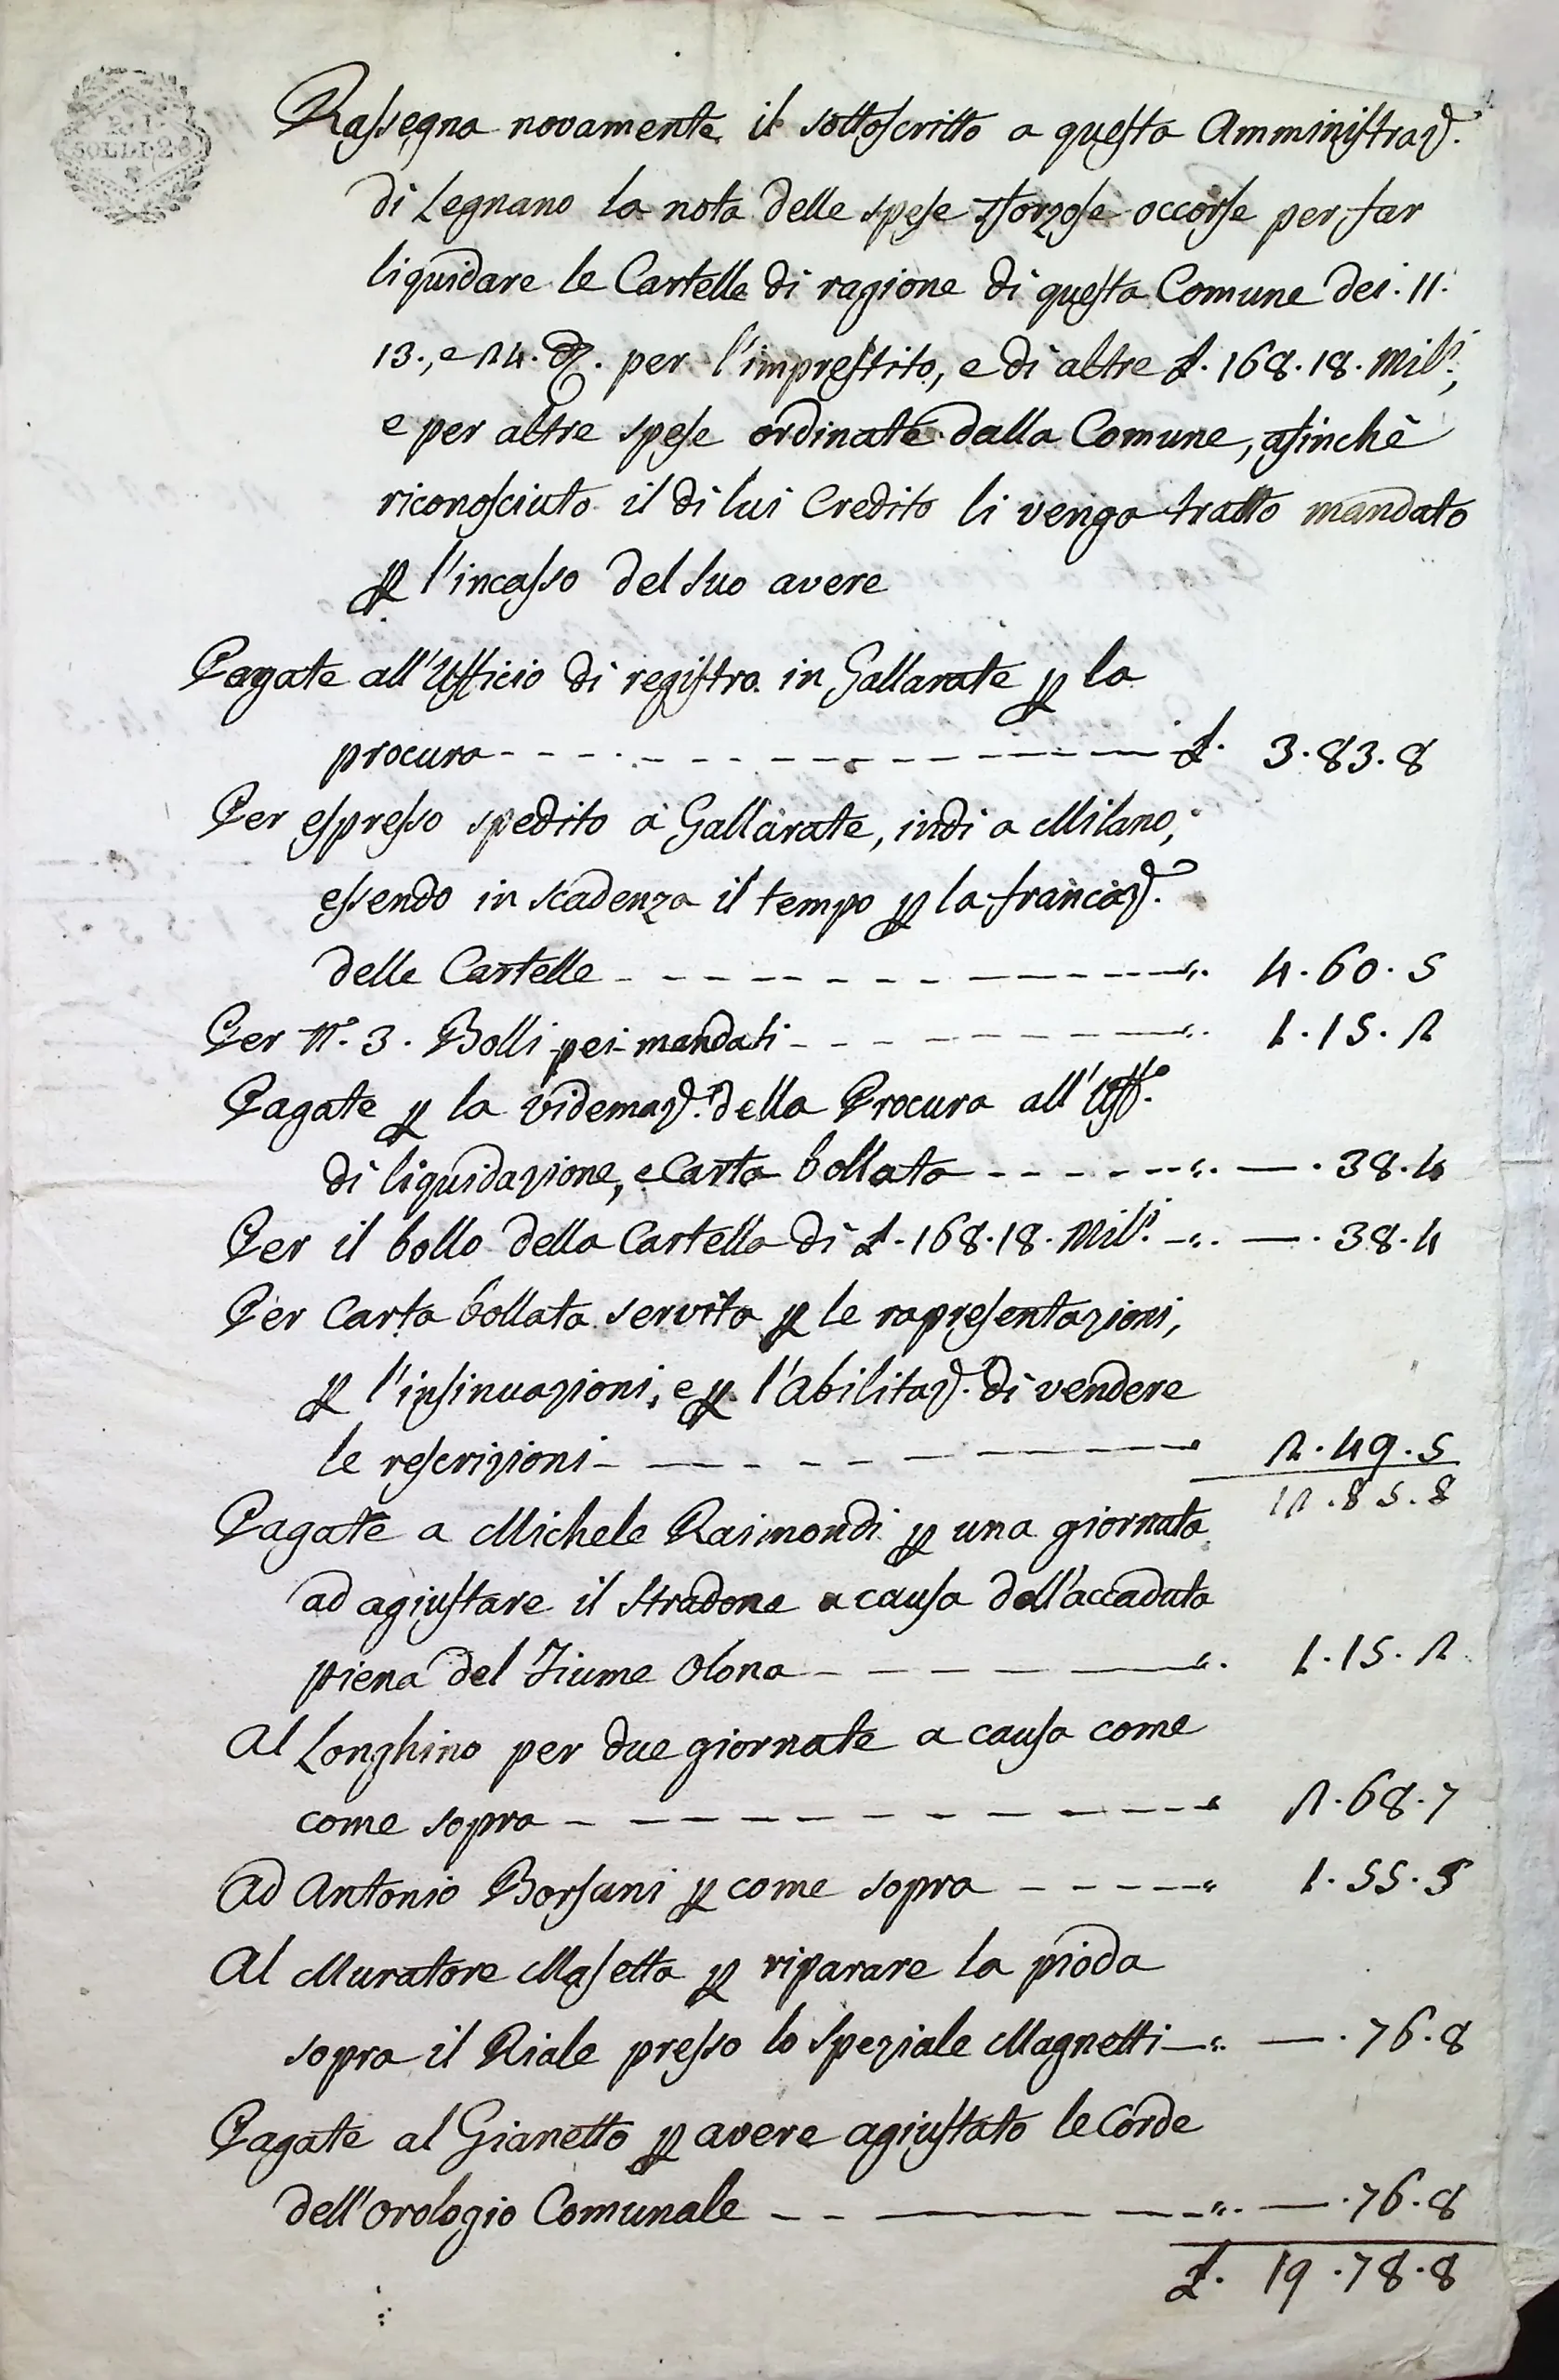 SOLDI 26
Rassegna novamente il sottoscritto a questa Amministraz.
di Legnano la nota delle spese sforzose occorse per far
liquidare le Cartelle di ragione di questa Comune dei. 11.
13., e 24. per l'imprestito, e di altre £. 168.18. Mil.i,
e per altre spese ordinate dalla Comune, afinchè
riconosciuto il di lui Credito li venga tratto mandato
p l'incasso del suo avere
Pagate all'Ufficio di registro in Gallarate p la
procura £. 3.83.8
Per espresso spedito a Gallarate, indi a Milano,
essendo in scadenza il tempo p la francaz.
delle Cartelle ". 4.60.5
Per N.° 3. Bolli pei mandati ". 1.15.2
Pagate p la videmaz. della Procura all'Uff.°
di liquidazione, e Carta bollata ". — . 38.4
Per il bollo della Cartella di £. 168.18. Mil.i ". — . 38.4
Per Carta bollata servita p le rapresentazioni,
p l'insinuazioni, e p l'Abilitaz. di vendere
le rescrizioni " 2.49.5
12.85.8
Pagate a Michele Raimondi p una giornata
ad agiustare il stradone a causa dell'accaduta
piena del Fiume Olona ". 1.15.2
Al Longhino per due giornate a causa come
come sopra " 2.68.7
Ad Antonio Borsani p come sopra " 1.55.5
Al Muratore Masetta p riparare la pioda
sopra il Riale presso lo speziale Magnetti ". — . 76.8
Pagate al Gianetto p avere agiustato le Corde
dell'Orologio Comunale ". — . 76.8
£. 19.78.8